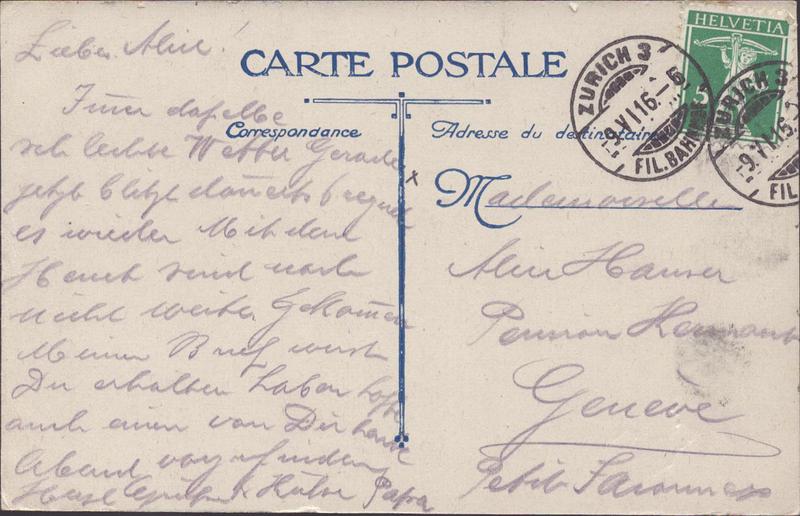 Lieber Alice!
CARTE POSTALE
Correspondance
Adresse du destinataire
HELVETIA
5
ZÜRICH 3
9.VI.16.-5
FIL. BAHNH
ZÜRICH 3
9.VI.15.
FIL
Immer dasselbe
schlechte Wetter Gerade
jetzt blitzt donnert & regnet
es wieder Mit dem
Heuet sind noch
nicht weiter gekommen
Meinen Brief wirst
Du erhalten haben hoffe
auch einen von Dir heute
Abend vorzufinden
Herzl Grüße & Küsse Papa
Mademoiselle
Alice Hauser
Pension
Genève
Petit Saconnex